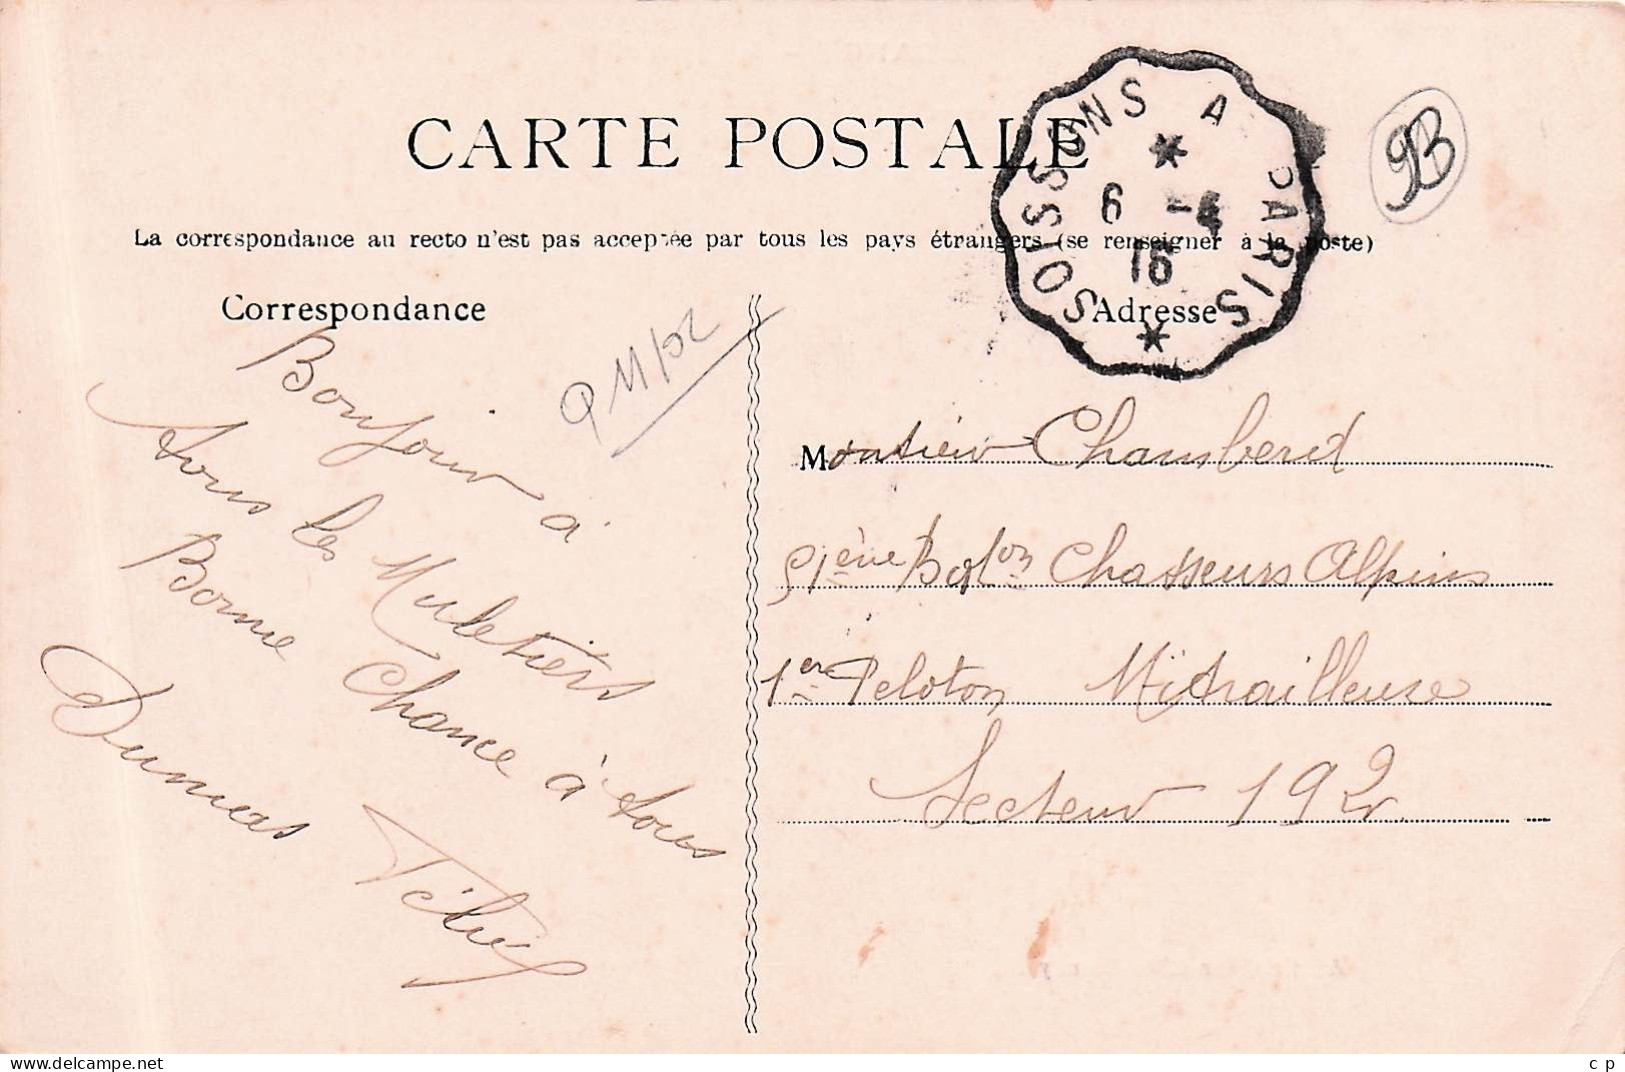 CARTE POSTALE
La correspondance au recto n'est pas acceptée par tous les pays étrangers (se renseigner à la poste)
SOISSONS A PARIS
6 -4
16
93
Correspondance
Adresse
Bonjour à
tous les Muletiers
Bonne Chance à tous
Dumas
Monsieur Chamberet
51ème Baton Chasseurs Alpins
1er Peloton Mitrailleuse
Secteur 192
c p